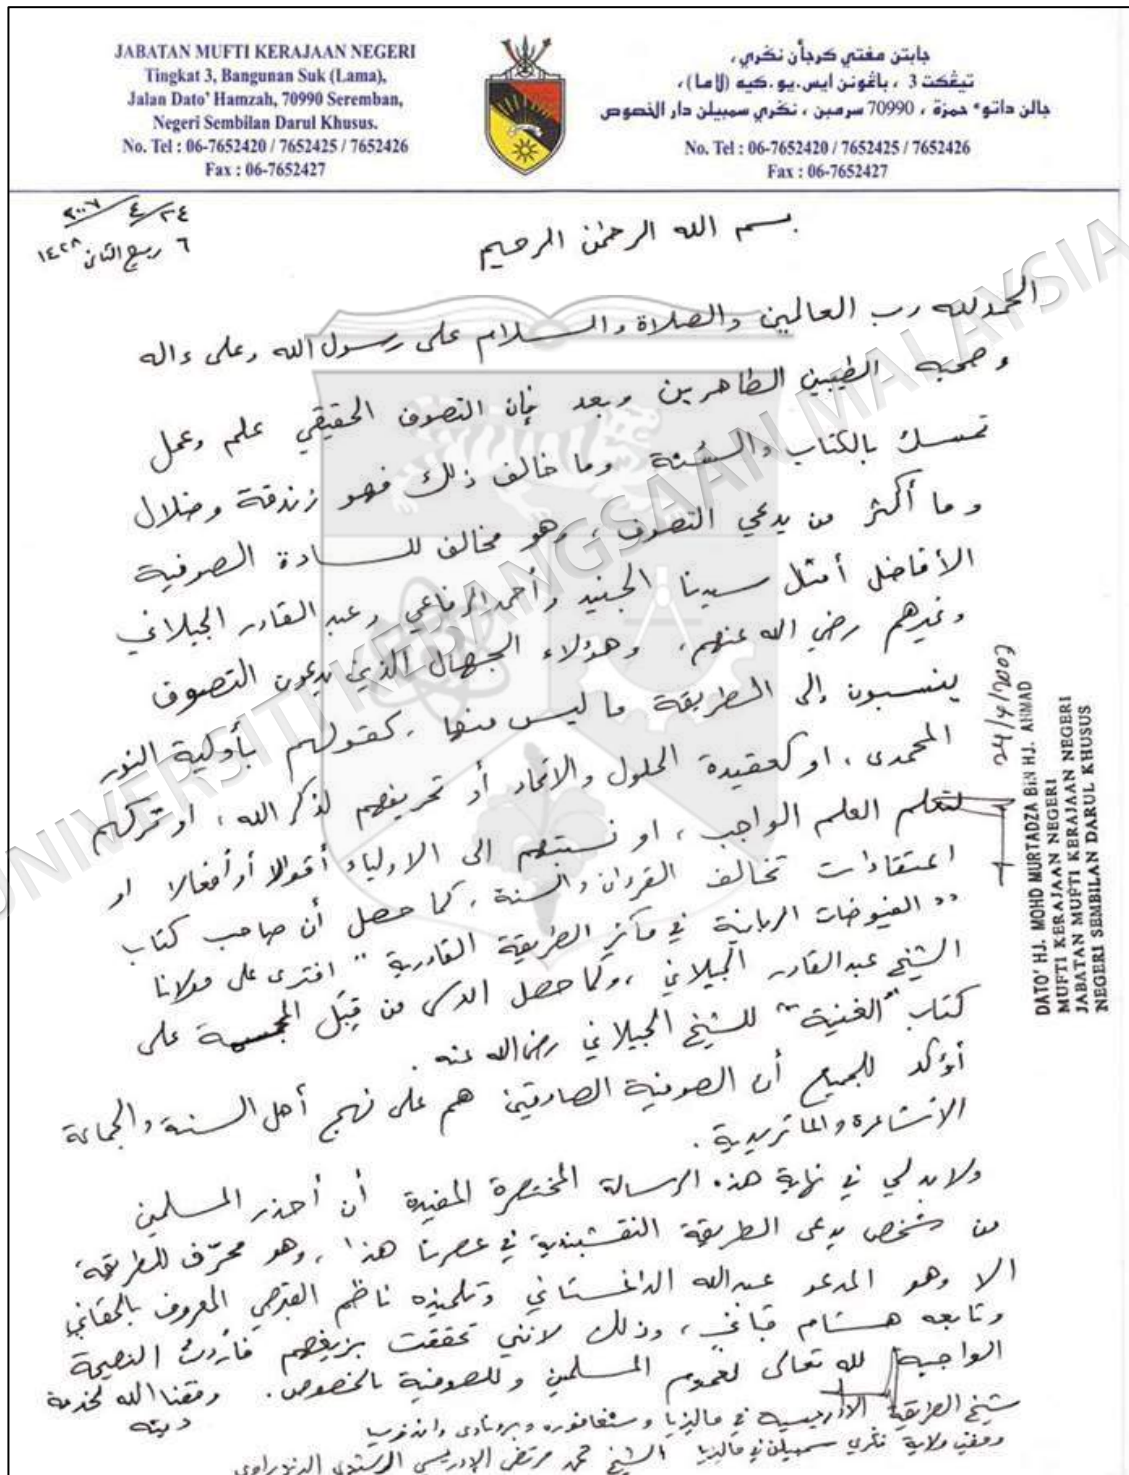 JABATAN MUFTI KERAJAAN NEGERI
Tingkat 3, Bangunan Suk (Lama),
Jalan Dato' Hamzah, 70990 Seremban,
Negeri Sembilan Darul Khusus.
No. Tel : 06-7652420 / 7652425 / 7652426
Fax : 06-7652427
جابتن مفتي كرجأن نݢري،
تيڠكت 3 ، باڠونن ايس.يو.كيه (لاما)،
جالن داتوء حمزة ، 70990 سرمبن ، نݢري سمبيلن دار الخصوص
No. Tel : 06-7652420 / 7652425 / 7652426
Fax : 06-7652427
٢٤/٤/٢٠٠٧
٦ ربيع الثاني ١٤٢٨
بسم الله الرحمٰن الرحيم
الحمد لله رب العالمين والصلاة والسلام على رسول الله وعلى ءاله
وصحبه الطيبين الطاهرين وبعد فإن التصوف الحقيقي علم وعمل
تمسك بالكتاب والسنة وما خالف ذلك فهو زندقة وضلال
وما أكثر من يدعي التصوف، وهو مخالف للسادة الصوفية
الأفاضل أمثل سيدنا الجنيد وأحمد الرفاعي وعبد القادر الجيلاني
وغيرهم رضي الله عنهم، وهؤلاء الجهال الذين يدعون التصوف
ينسبون إلى الطريقة ما ليس منها، كقولهم بأولية النور
المحمدى، او كعقيدة الحلول والاتحاد أو تحريفهم لذكر الله، او تركهم
لتعلم العلم الواجب، او نسبتهم الى الاولياء أقوالا أو أفعالا او
اعتقادات تخالف القرءان والسنة، كما حصل أن صاحب كتاب
"الفيوضات الربانية في مآثر الطريقة القادرية" افترى على مولانا
الشيخ عبد القادر الجيلاني، وكما حصل الدس من قِبَل المجسمة على
كتاب "الغنية" للشيخ الجيلاني رضي الله عنه.
أؤكد للجميع أن الصوفية الصادقين هم على نهج أهل السنة والجماعة
الاشاعرة والماتريدية.
ولا بد لي في نهاية هذه الرسالة المختصرة المفيدة أن أحذر المسلمين
من شخص يدعى الطريقة النقشبندية في عصرنا هذا، وهو محرّف للطريقة،
الا وهو المدعو عبد الله الداغستاني وتلميذه ناظم القبرصي المعروف بالحقاني
وتابعه هشام قباني، وذلك لانني تحققت بزيفهم فأردت النصيحة
الواجبة لله تعالى لعموم المسلمين وللصوفية بالخصوص. وفقنا الله لخدمة
دينه
شيخ الطريقة الادريسية في ماليزيا وسنغافوره وبروناى واندونيسيا
ومفتي ولاية نݢري سمبيلن في ماليزيا الشيخ محمد مرتضى الإدريسي الرشيدي الدندراوى
24/4/2007
DATO' HJ. MOHD MURTADZA BIN HJ. AHMAD
MUFTI KERAJAAN NEGERI
JABATAN MUFTI KERAJAAN NEGERI
NEGERI SEMBILAN DARUL KHUSUS
UNIVERSITI KEBANGSAAN MALAYSIA